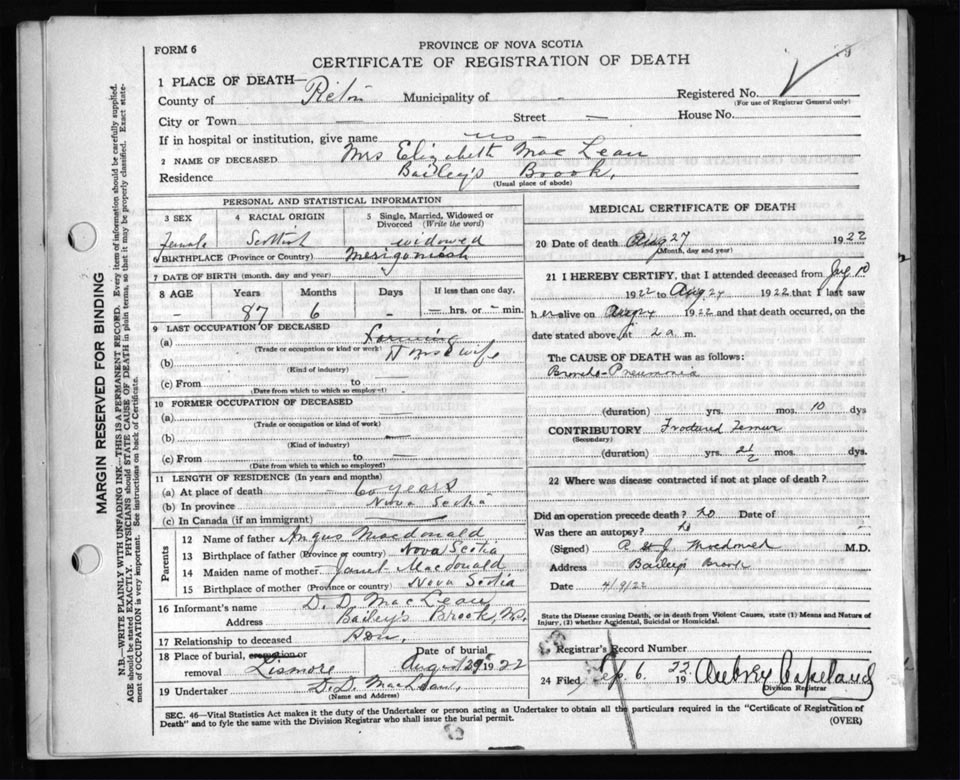 FORM 6
PROVINCE OF NOVA SCOTIA
CERTIFICATE OF REGISTRATION OF DEATH
1 PLACE OF DEATH—
County of Pictou Municipality of
Registered No.
(For use of Registrar General only)
City or Town — Street — House No.
If in hospital or institution, give name no
2 NAME OF DECEASED Mrs Elizabeth MacLean
Residence Bailey's Brook,
(Usual place of abode)
PERSONAL AND STATISTICAL INFORMATION
3 SEX
Female
4 RACIAL ORIGIN
Scottish
5 Single, Married, Widowed or Divorced (Write the word)
widowed
6 BIRTHPLACE (Province or Country) Merigomish
7 DATE OF BIRTH (month, day and year)
8 AGE Years Months Days If less than one day,
- 87 6 - — hrs. or — min.
9 LAST OCCUPATION OF DECEASED
(a) Farming
(Trade or occupation or kind of work)
(b) wife
(Kind of industry)
(c) From to
(Date from which to which so employed)
10 FORMER OCCUPATION OF DECEASED
(a) —
(Trade or occupation or kind of work)
(b) —
(Kind of industry)
(c) From to —
(Date from which to which so employed)
11 LENGTH OF RESIDENCE (In years and months)
(a) At place of death 60 years
(b) In province Nova Scotia
(c) In Canada (if an immigrant)
Parents
12 Name of father Angus Macdonald
13 Birthplace of father (Province or country) Nova Scotia
14 Maiden name of mother Janet Macdonald
15 Birthplace of mother (Province or country) Nova Scotia
16 Informant's name D. D. MacLean
Address Bailey's Brook, N.S.
17 Relationship to deceased Son,
18 Place of burial, cremation or removal Lismore
Date of burial August 29 1922
19 Undertaker D. D. MacLean,
(Name and Address)
MEDICAL CERTIFICATE OF DEATH
20 Date of death Aug 27 1922
(Month, day and year)
21 I HEREBY CERTIFY, that I attended deceased from 10
1922 to Aug 27 1922 that I last saw
h er alive on Aug 1922 and that death occurred, on the
date stated above, at 2 a. m.
The CAUSE OF DEATH was as follows:
Broncho-Pneumonia
(duration) yrs. mos. 10 dys
CONTRIBUTORY Femur
(Secondary)
(duration) yrs. 2½ mos. dys.
22 Where was disease contracted if not at place of death?
Did an operation precede death? no Date of
Was there an autopsy? no
(Signed) M.D.
Address Bailey's Brook
Date 4/9/22
State the Disease causing Death, or in death from Violent Causes, state (1) Means and Nature of Injury, (2) whether Accidental, Suicidal or Homicidal.
23 Registrar's Record Number
24 Filed Sep. 6. 1922 Aubrey Copeland
Division Registrar
SEC. 46—Vital Statistics Act makes it the duty of the Undertaker or person acting as Undertaker to obtain all the particulars required in the "Certificate of Registration of
Death" and to fyle the same with the Division Registrar who shall issue the burial permit.
(OVER)
MARGIN RESERVED FOR BINDING
N.B.—WRITE PLAINLY WITH UNFADING INK—THIS IS A PERMANENT RECORD. Every item of information should be carefully supplied.
AGE should be stated EXACTLY. PHYSICIANS should STATE CAUSE OF DEATH in plain terms, so that it may be properly classified. Exact statement of OCCUPATION is very important. See instructions on back of Certificate.